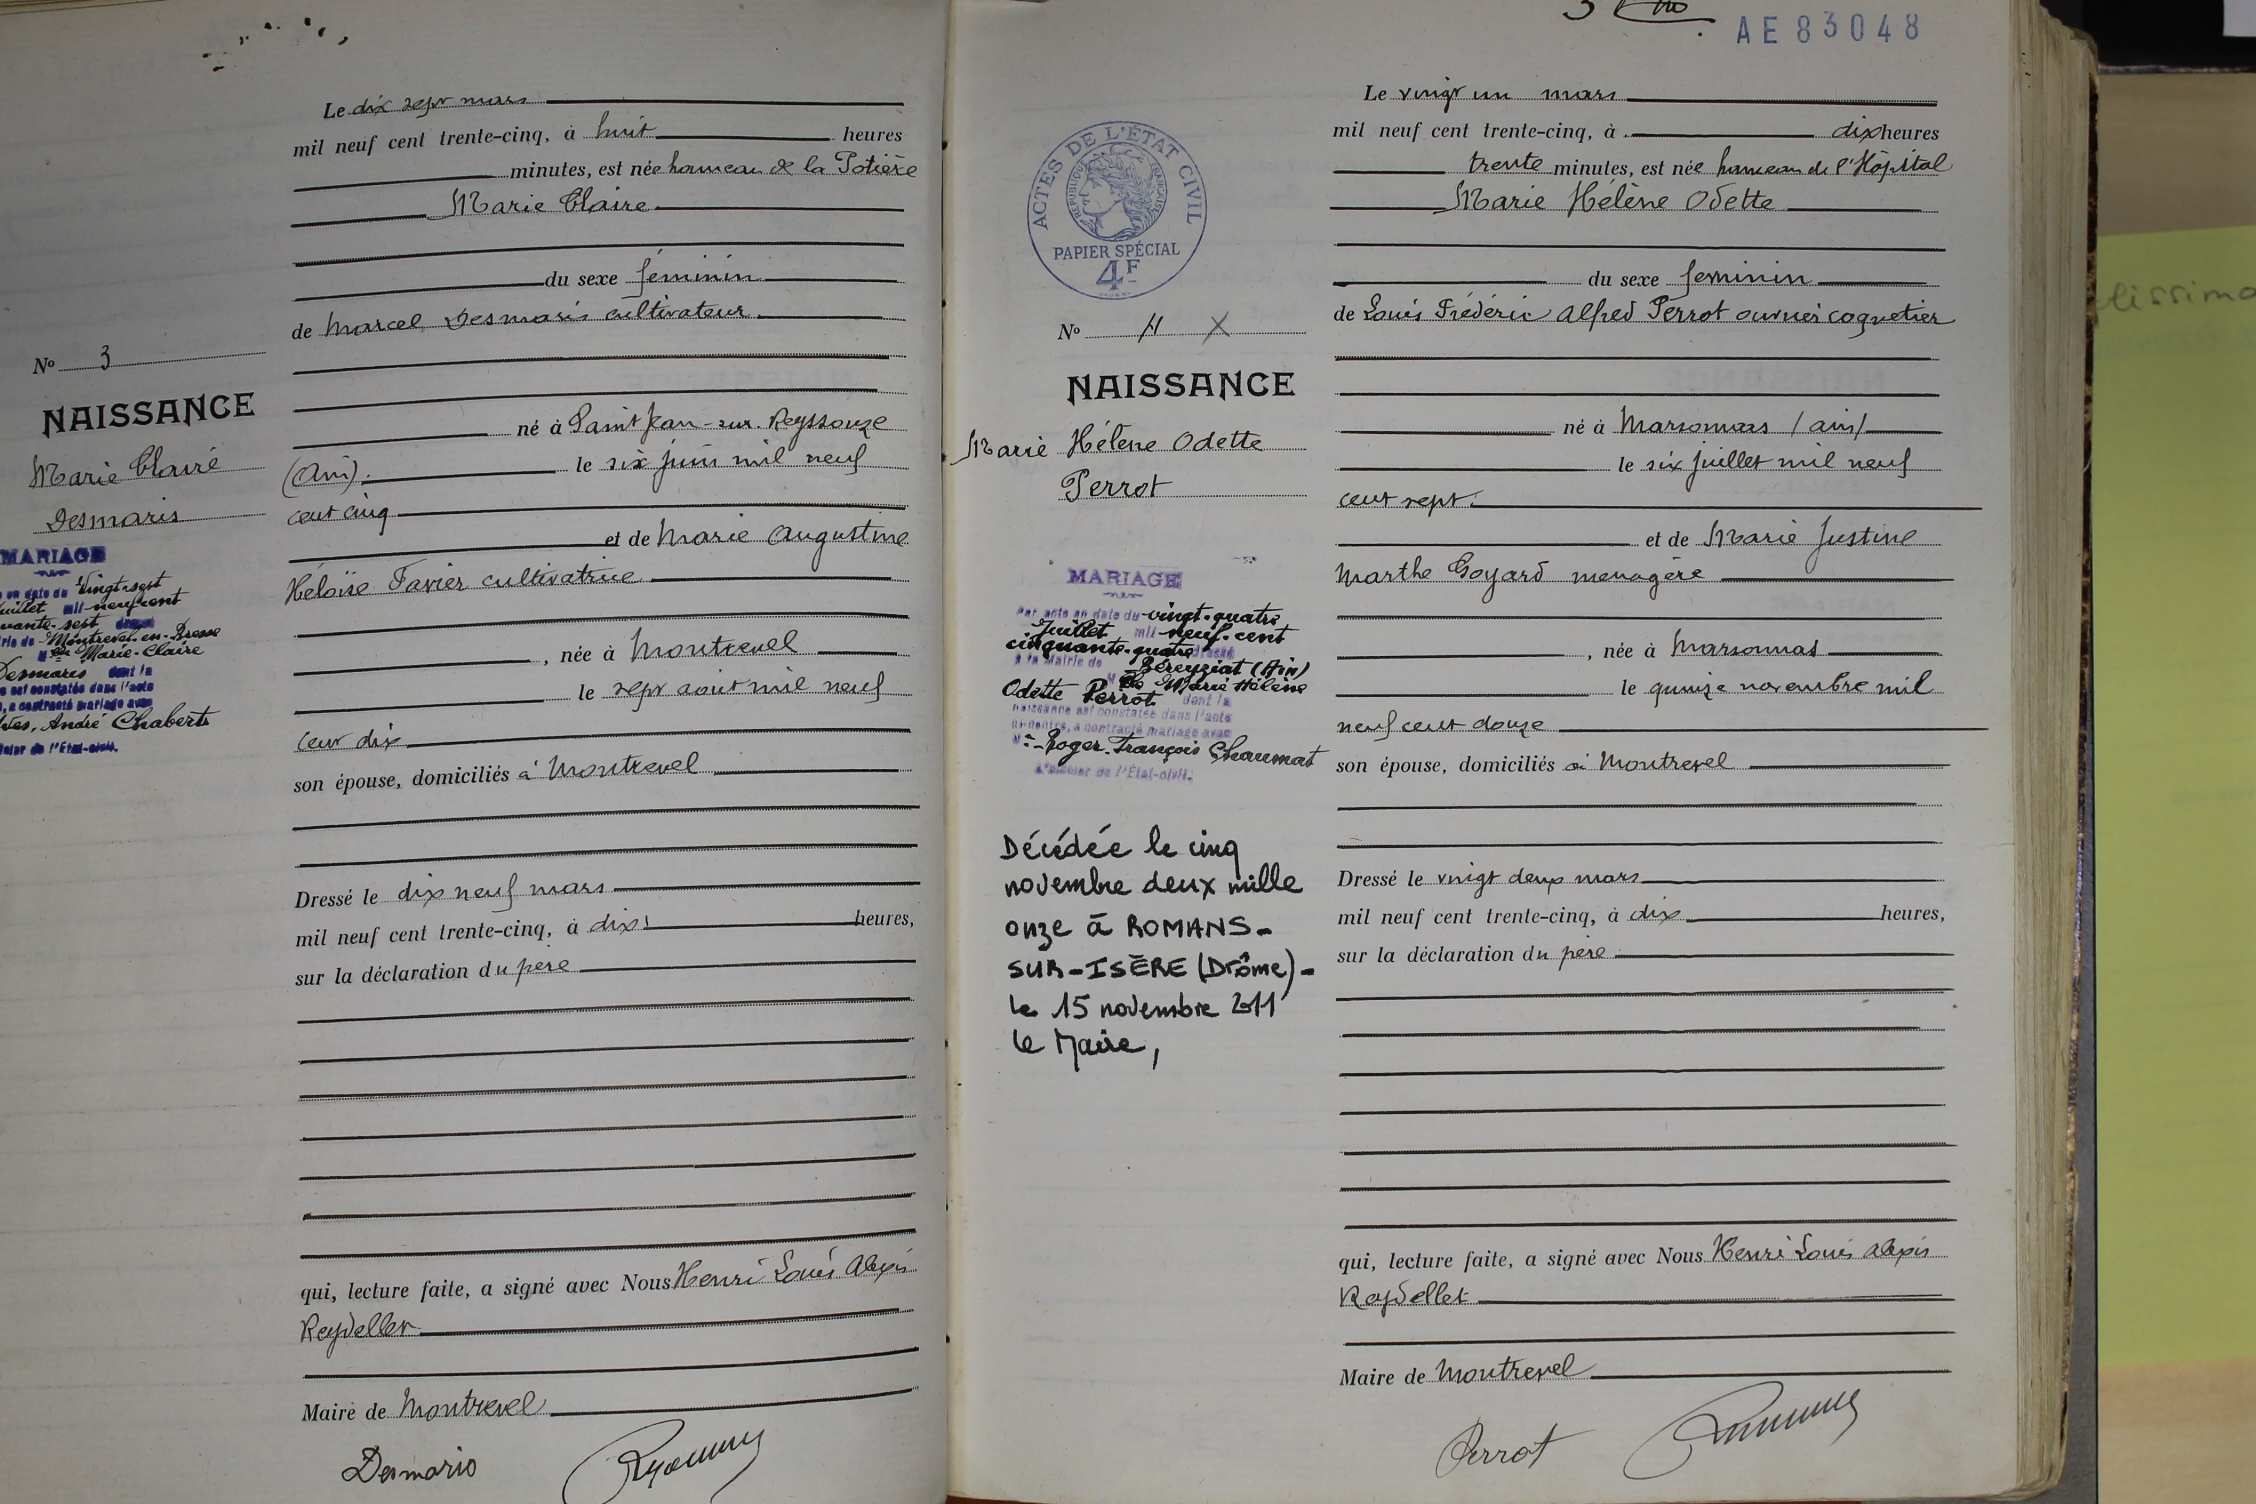 Le dix sept mars
mil neuf cent trente-cinq, à huit heures
minutes, est née hameau de la Potière
Marie Claire
du sexe féminin
de Marcel Desmaris cultivateur
né à Saint Jean-sur-Reyssouze
(Ain). le six juin mil neuf
cent cinq
et de Marie Augustine
Héloïse Favier cultivatrice
, née à Montrevel
le sept août mil neuf
cent dix
son épouse, domiciliés à Montrevel
Dressé le dix neuf mars
mil neuf cent trente-cinq, à dix heures,
sur la déclaration du père
qui, lecture faite, a signé avec Nous Henri Louis Alexis
Reydellet
Maire de Montrevel
Desmaris
No 3
NAISSANCE
Marie Claire
Desmaris
MARIAGE
en date du Vingt-sept
juillet mil neuf cent
uante-sept
rie de Montrevel-en-Bresse
Mlle Marie-Claire
Desmaris dont la
est constatée dans l'acte
, a contracté mariage avec
André Chabert
cier de l'État-civil.
AE83048
ACTES DE L'ÉTAT CIVIL
RÉPUBLIQUE FRANÇAISE
PAPIER SPÉCIAL
4F
No 4 X
NAISSANCE
Marie Hélène Odette
Perrot
MARIAGE
Par acte en date du vingt-quatre
Juillet mil neuf-cent
cinquante-quatre dressé
à la Mairie de Béreyziat (Ain)
Mlle Marie Hélène
Odette Perrot dont la
naissance est constatée dans l'acte
ci-contre, a contracté mariage avec
M. Roger François Chaumat
L'Officier de l'État-civil.
Décédée le cinq
novembre deux mille
onze à ROMANS-
SUR-ISÈRE (Drôme)-
le 15 novembre 2011
le Maire,
Le vingt un mars
mil neuf cent trente-cinq, à dix heures
trente minutes, est née hameau de l'Hôpital
Marie Hélène Odette
du sexe feminin
de Louis Frédéric Alfred Perrot ouvrier coquetier
né à Marsonnas (Ain)
le six juillet mil neuf
cent sept.
et de Marie Justine
Marthe Goyard menagère
, née à Marsonnas
le quinze novembre mil
neuf cent douze
son épouse, domiciliés à Montrevel
Dressé le vingt deux mars
mil neuf cent trente-cinq, à dix heures,
sur la déclaration du père
qui, lecture faite, a signé avec Nous Henri Louis Alexis
Reydellet
Maire de Montrevel
Perrot